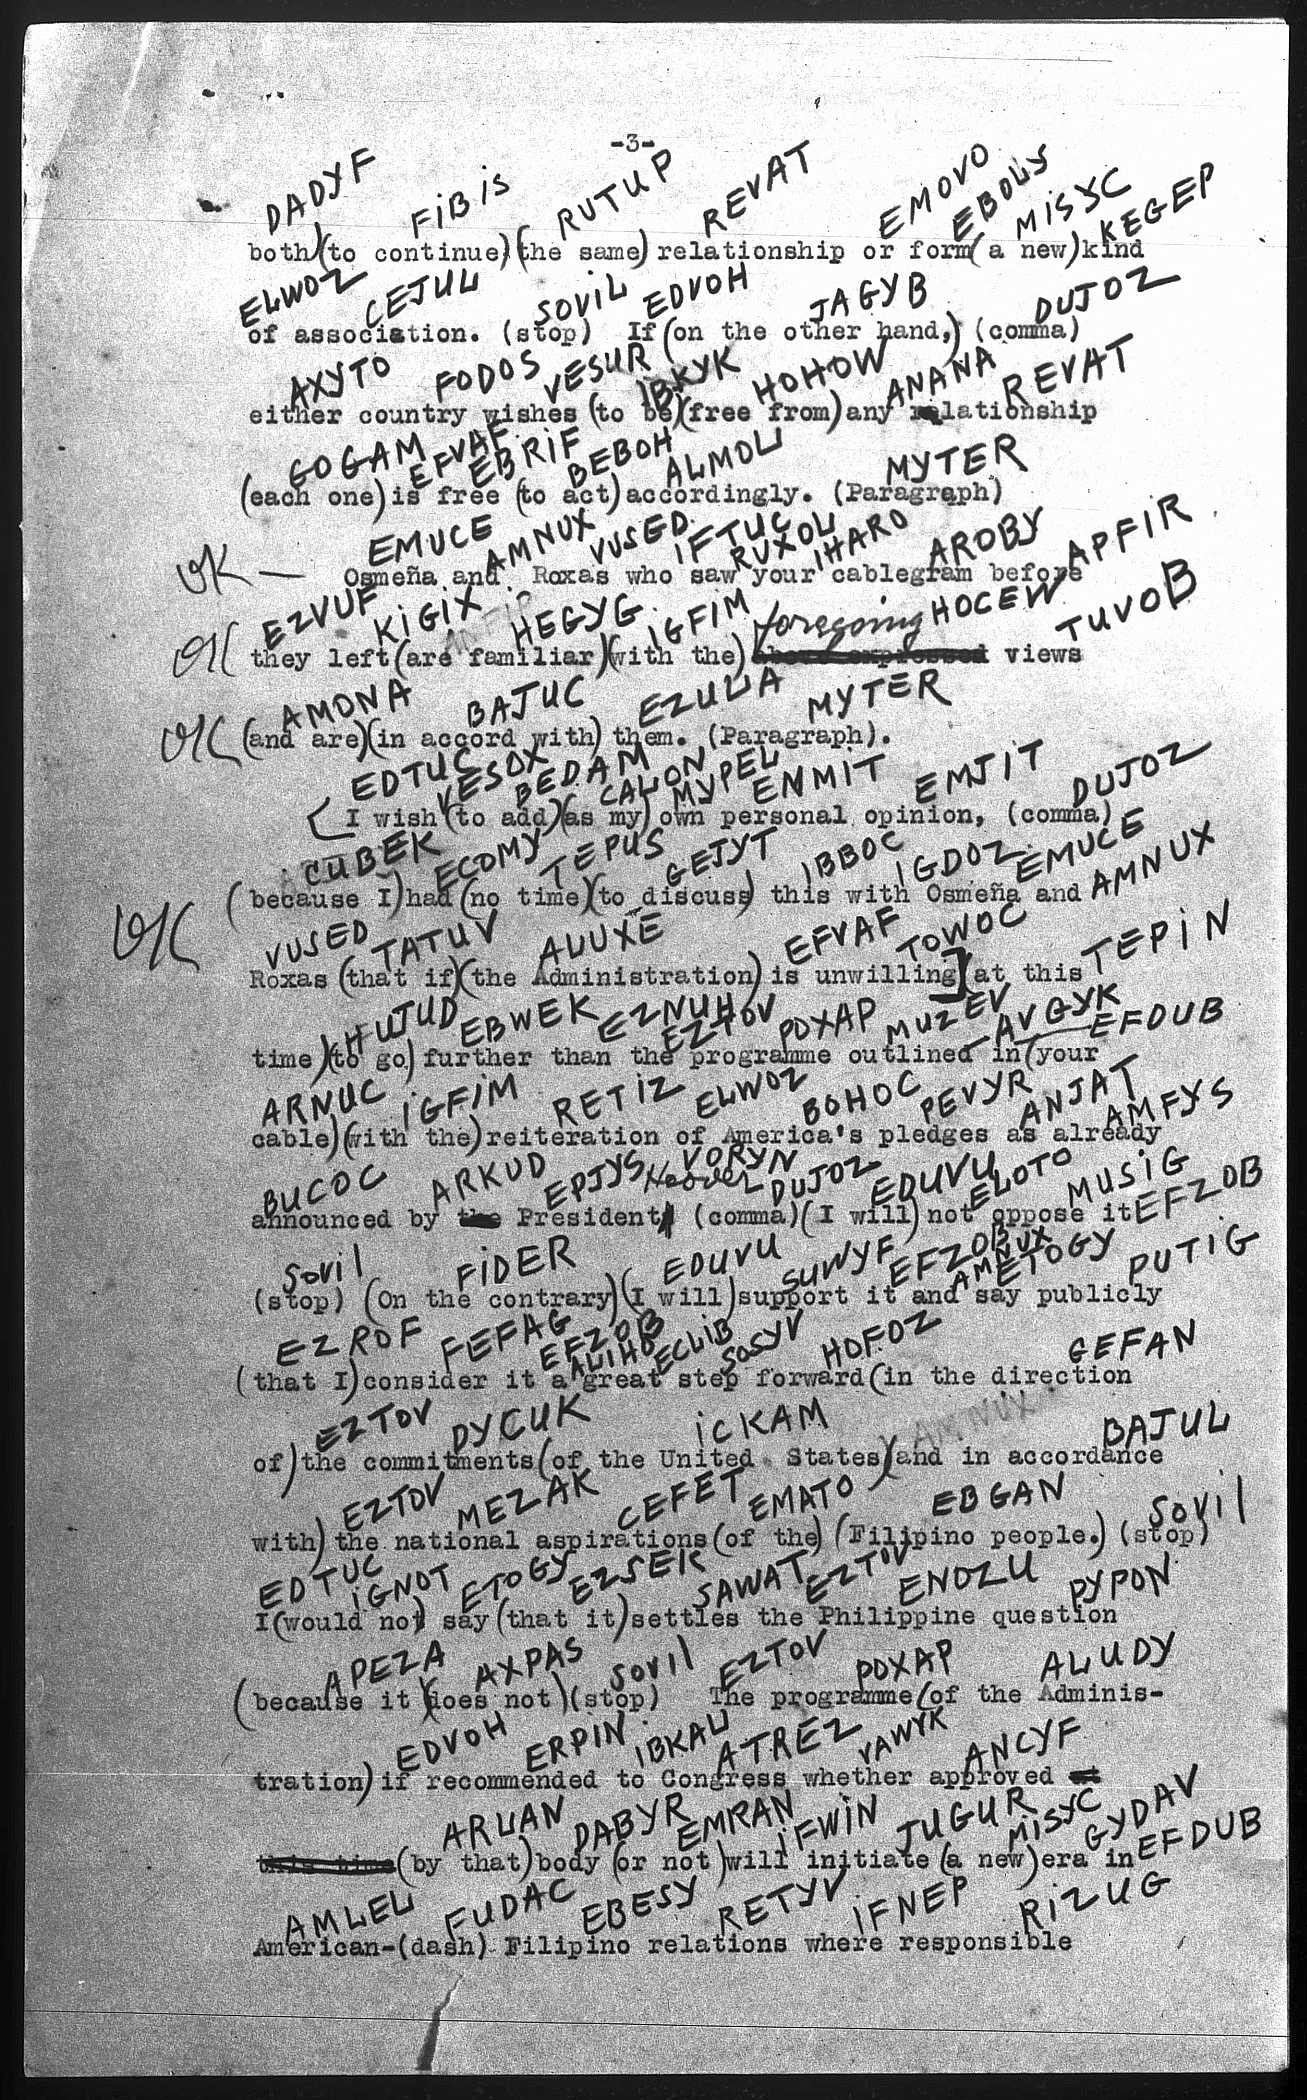 -3-
DADYF FIBIS RUTUP REVAT EMOVO EBOLYS MISYC KEGEP
both)(to continue)(the same) relationship or form( a new)kind
ELWOZ CEJUL SOVIL EDVOH JAGYB DUJOZ
of association. (stop) If (on the other hand,) (comma)
AXYTO FODOS VESUR IBKYK HOHOW ANANA REVAT
either country wishes (to be)(free from)any relationship
GOGAM EFVAF EBRIF BEBOH ALMOL MYTER
(each one)is free (to act)accordingly. (Paragraph)
EMUCE AMNUX VUSED IFTUC RUXOL IHARO AROBY APFIR
OK — Osmeña and Roxas who saw your cablegram before
EZVUF KIGIX HEGYG IGFIM foregoing HOCEW TUVOB
OK they left(are familiar)(with the) views
AMONA BAJUC EZULA MYTER
OK (and are)(in accord with) them. (Paragraph).
EDTUC VESOX BEDAM CALON MYPEL ENMIT EMJIT DUJOZ
I wish(to add)(as my) own personal opinion, (comma)
CUBEK ECOMY TEPUS GEJYT IBBOC IGDOZ EMUCE AMNUX
(because I)had(no time)(to discuss) this with Osmeña and
OK VUSED TATUV ALUXE EFVAF TOWOC TEPIN
Roxas (that if)(the Administration) is unwilling](at this
HUJUD EBWEK EZNUH EZTOV POXAP MUZEV AVGYK EFDUB
time)(to go) further than the programme outlined in(your
ARNUC IGFIM RETIZ ELWOZ BOHOC PEVYR ANJAT AMFYS
cable)(with the)reiteration of America's pledges as already
BUCOC ARKUD EPJYS Hoover VORYN DUJOZ EDUVU ELOTO MUSIG EFZOB
announced by the President (comma)(I will) not oppose it
SOVIL FIDER EDUVU SUWYF EFZOB AMNUX ETOGY PUTIG
(stop) (On the contrary)(I will)support it and say publicly
EZROF FEFAG EFZOB ALIHO ECLIB SOSYV HOFOZ GEFAN
(that I)consider it a great step forward(in the direction
EZTOV DYCUK ICKAM AMNUX BAJUL
of)the commitments(of the United States)(and in accordance
EZTOV MEZAK CEFET EMATO EBGAN SOVIL
with) the national aspirations(of the)(Filipino people.) (stop)
EDTUC IGNOT ETOGY EZSEK SAWAT EZTOV ENOZU PYPON
I(would not) say(that it)settles the Philippine question
APEZA AXPAS SOVIL EZTOV POXAP ALUDY
(because it)(does not)(stop) The programme(of the Adminis-
EDVOH ERPIN IBKAL ATREZ VAWYK ANCYF
tration)if recommended to Congress whether approved at
ARUAN DABYR EMRAN IFWIN JUGUR MISYC GYDAV EFDUB
this time(by that)body(or not)will initiate(a new)era in
AMLEL FUDAC EBESY RETYV IFNEP RIZUG
American-(dash) Filipino relations where responsible